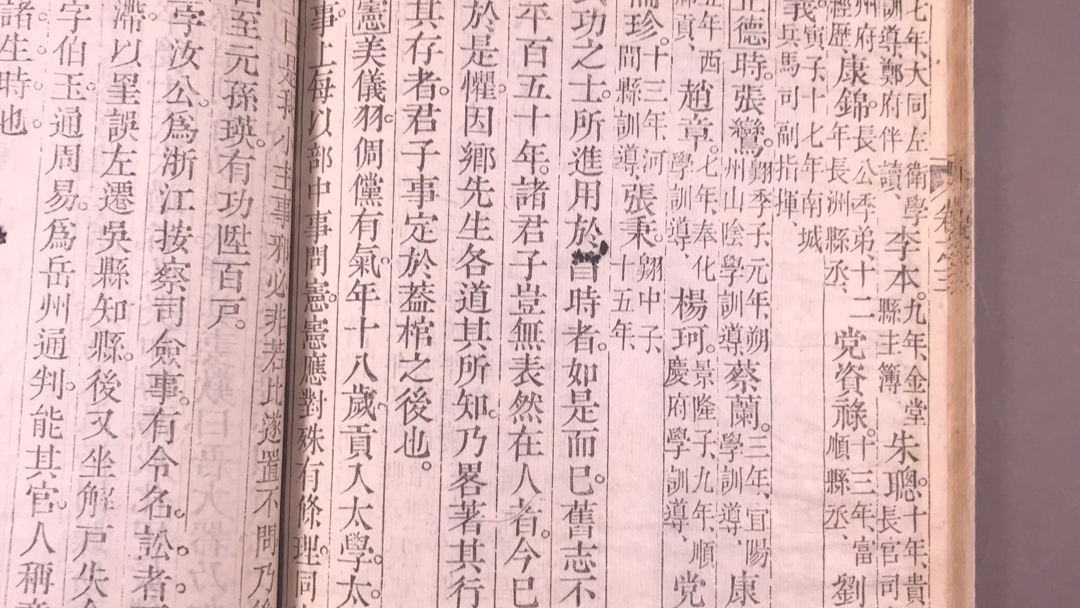 七年、大同左衛學
訓導、鄭府伴讀、
李本。
九年、金堂
縣主簿、
朱聰。
十年、貴
長官司
州府
經歷、
康錦。
長公季弟、十
年長洲縣丞、
二党資祿。
十三年、富
順縣丞、
劉
義。
寅子、十七年南城
兵馬司副指揮、
正德時。張鸞。
翱季子、元年、朔
州山陰學訓導、
蔡蘭。
三年、宜陽
學訓導、
康
五年、西
鄉貢、
趙章。
七年、奉化
學訓導、
楊珂。
景隆子、九年、順
慶府學訓導、
党
儒珍。
十三年、河
間縣訓導、
張秉。
翱中子、
十五年、
武功之士。所進用於當時者。如是而已。舊志不
平百五十年。諸君子豈無表然在人者。今已
於是懼。因鄉先生各道其所知。乃畧著其行
其存者。君子事定於蓋棺之後也。
憲美儀羽。倜儻有氣。年十八歲。貢入太學。太
事上每以部中事問憲。憲應對殊有條理。同
小主事邪必非若比遂置不問乃
召至元孫瑛。有功陞百戶。
字汝公。爲浙江按察司僉事。有令名。訟者
滯以罣誤左遷吳縣知縣。後又坐解戶失
字伯玉。通周易。爲岳州通判。能其官。人稱
諸生時。也